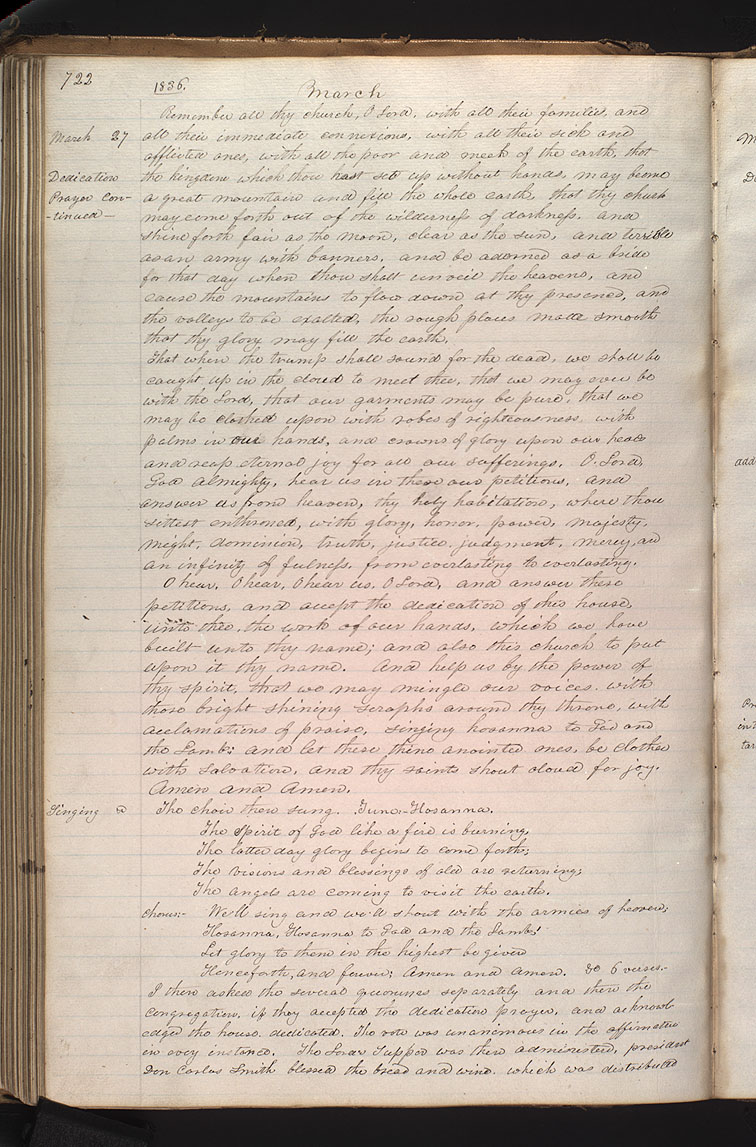 722
1836.
March
Remember all thy church, O Lord, with all their families, and
March 27
all their immediate connexions, with all their sick and
afflicted ones, with all the poor and meek of the earth, that
Dedication
the kingdom which thou hast set up without hands, may become
Prayer con-
a great mountain and fill the whole earth, that thy church
-tinued—
may come forth out of the wilderness of darkness, and
shine forth fair as the moon, clear as the sun, and terrible
as an army with banners, and be adorned as a bride
for that day when thou shalt unveil the heavens, and
cause the mountains to flow down at thy presence, and
the valleys to be exalted, the rough places made smooth
that thy glory may fill the earth,
that when the trump shall sound for the dead, we shall be
caught up in the cloud to meet thee, that we may ever be
with the Lord, that our garments may be pure, that we
may be clothed upon with robes of righteousness, with
palms in our hands, and crowns of glory upon our heads
and reap eternal joy for all our sufferings. O Lord,
God Almighty, hear us in these our petitions, and
answer us from heaven, thy holy habitation, where thou
sittest enthroned, with glory, honor, power, majesty,
might, dominion, truth, justice, judgment, mercy, and
an infinity of fulness, from everlasting to everlasting.
O hear, O hear, O hear us, O Lord, and answer these
petitions, and accept the dedication of this house,
unto thee, the work of our hands, which we have
built unto thy name; and also this church to put
upon it thy name. And help us by the power of
thy spirit, that we may mingle our voices with
those bright shining seraphs around thy throne, with
acclamations of praise, singing hosanna to God and
the Lamb: and let these thine anointed ones, be clothed
with salvation, and thy saints shout aloud for joy.
Amen and Amen.
Singing
The choir then sung. Tune:- Hosanna.
The Spirit of God like a fire is burning,
The latter day glory begins to come forth;
The visions and blessings of old are returning;
The angels are coming to visit the earth.
Chorus:- We'll sing and we'll shout with the armies of heaven;
Hosanna, Hosanna to God and the Lamb!
Let glory to them in the highest be given
Henceforth, and forever: Amen and Amen. &c 6 verses.
I then asked the several quorums separately and then the
congregation, if they accepted the dedication prayer, and acknowl
edged the house dedicated. The vote was unanimous in the affirmative
in every instance. The Lords Supper was then administered, president
Don Carlos Smith blessed the bread and wine, which was distributed
add